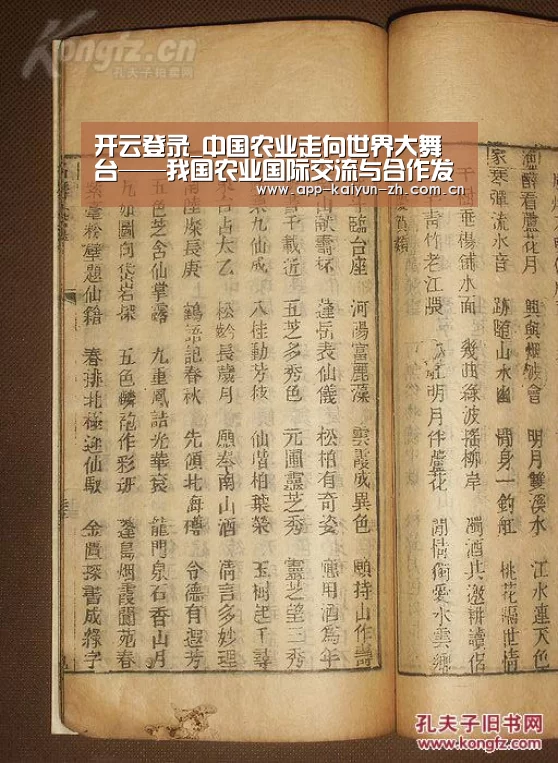 Kongfz.cn
孔夫子拍卖网
开云登录_中国农业走向世界大舞
台——我国农业国际交流与合作发
www.app-kaiyun-zh.com.cn
醉看蘆花月 興與烟波會 明月雙溪水 江水連天色
家寒彈流水音 跡隨山水幽 閒身一釣舡 桃花隔世情
千樹垂楊鋪水面 幾曲綠波搖柳岸 濁酒共邀耕讀侶
青竹老江隈 明月伴蘆花 閒情 水雲鄉
臨台座 河陽富麗藻 雲霞成異色 願持山作壽
山獻壽杯 蓬岳表仙儀 松柏有奇姿 應用酒為年
千載近 五芝多秀色 元圃靈芝秀 靈芝望三秀
九仙成 八桂動芳枝 仙階柏葉榮 玉樹起千尋
台占太乙 松齡長歲月 願奉南山酒 清言多妙理
陸粲長庚 鶴語記春秋 先傾北海樽 令德有遐芳
五色芝含仙掌露 九重鳳詰光華袞 龍門泉石香山月
九如圖向岱岩深 五色麟龍作彩班 蓬島烟霞閬苑春
紫毫粉壁題仙籍 春排北極迎仙馭 金匱探書成綠字
孔夫子旧书网
www.kongfz.com